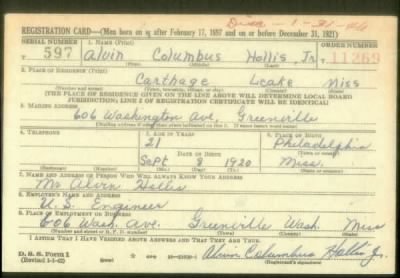 Disc - 1-31-46
REGISTRATION CARD—(Men born on or after February 17, 1897 and on or before December 31, 1921)
SERIAL NUMBER 1. NAME (Print) ORDER NUMBER
T 597 Alvin Columbus Hollis, Jr. 11269
(First) (Middle) (Last)
2. PLACE OF RESIDENCE (Print)
Carthage Leake Miss
(Number and street) (Town, township, village, or city) (County) (State)
(THE PLACE OF RESIDENCE GIVEN ON THE LINE ABOVE WILL DETERMINE LOCAL BOARD
JURISDICTION; LINE 2 OF REGISTRATION CERTIFICATE WILL BE IDENTICAL)
3. MAILING ADDRESS
606 Washington Ave, Greenville
4. TELEPHONE 5. AGE IN YEARS 6. PLACE OF BIRTH
21 Philadelphia
DATE OF BIRTH
Sept 8 1920 Miss.
7. NAME AND ADDRESS OF PERSON WHO WILL ALWAYS KNOW YOUR ADDRESS
Mr Alvin Hollis
8. EMPLOYER'S NAME AND ADDRESS
U.S. Engineer
9. PLACE OF EMPLOYMENT OR BUSINESS
606 Wash. Ave. Greenville Wash. Miss
(Number and street or R. F. D. number) (Town) (County) (State)
I AFFIRM THAT I HAVE VERIFIED ABOVE ANSWERS AND THAT THEY ARE TRUE.
D. S. S. Form 1
(Revised 1-1-42) Alvin Columbus Hollis Jr.
(Registrant's signature)